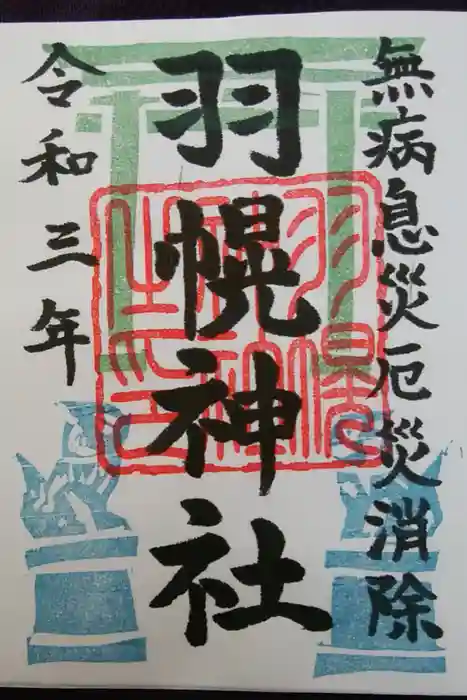 無病息災厄災消除
羽幌神社
令和三年